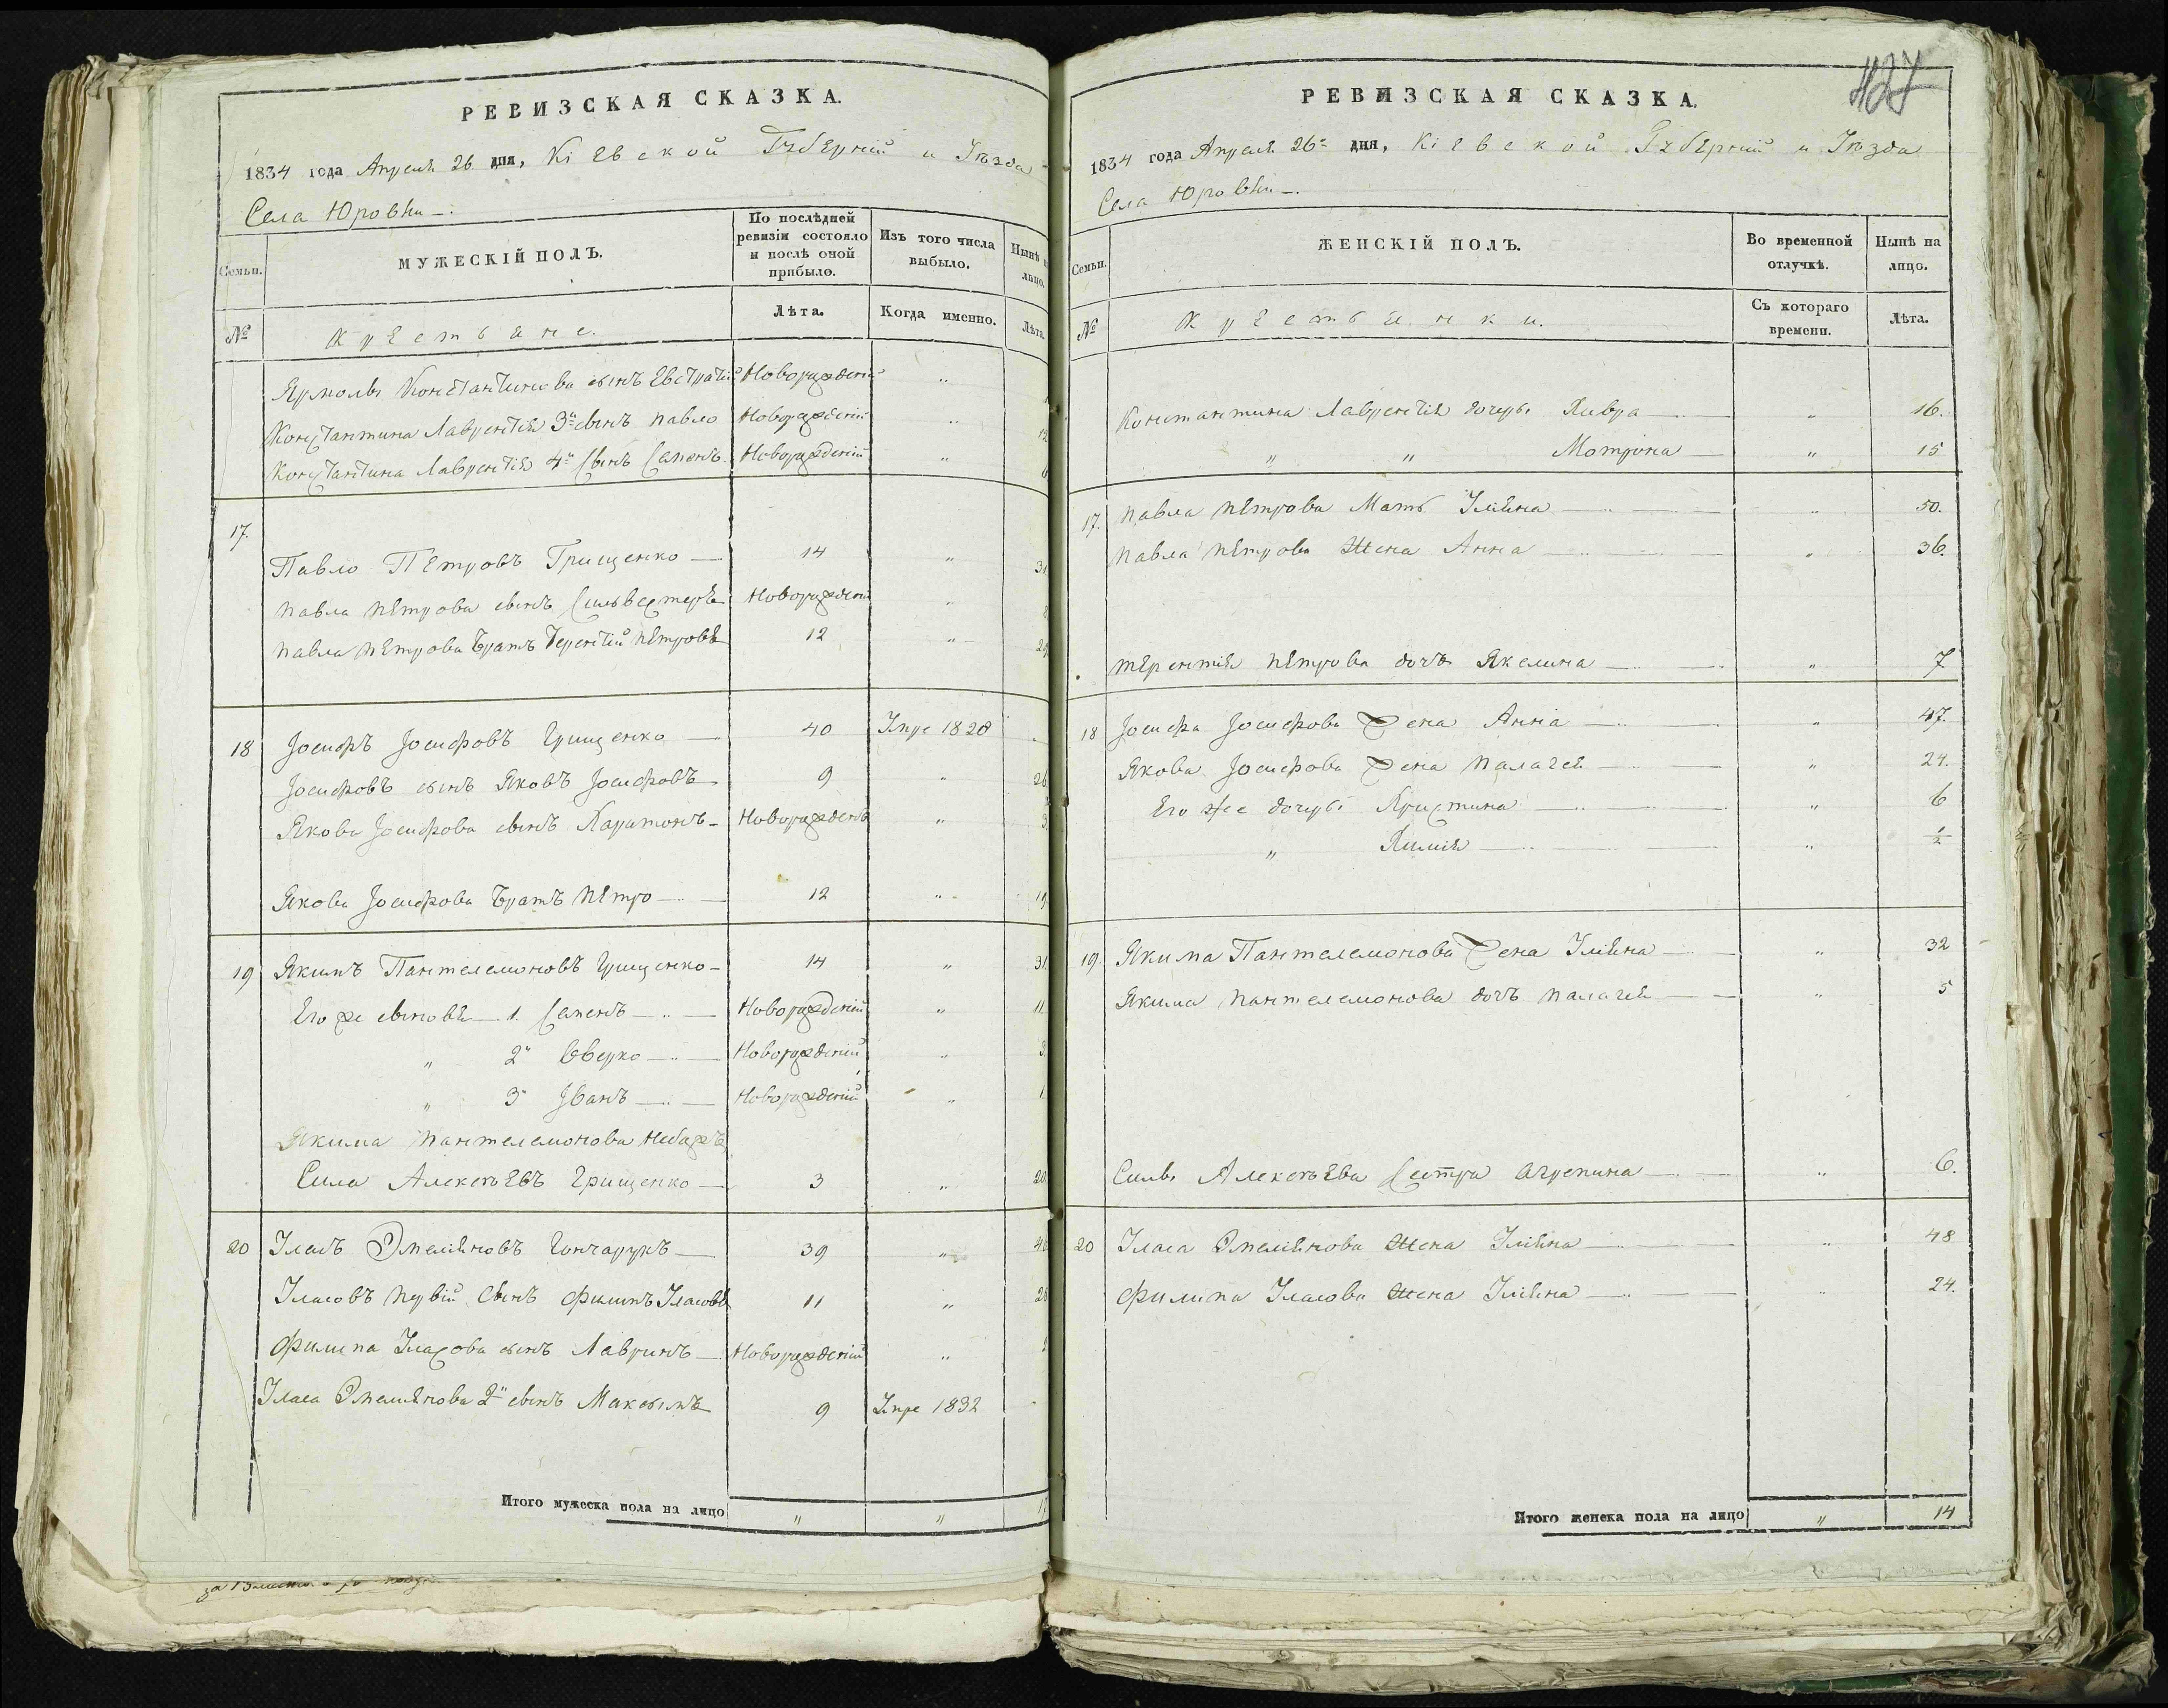 РЕВИЗСКАЯ СКАЗКА.
1834 года Апреля 26 дня, Кіевской Губерніи и Уѣзда
Села Юровки
Семьи.
МУЖЕСКІЙ ПОЛЪ.
По послѣдней ревизіи состояло и послѣ оной прибыло.
Изъ того числа выбыло.
Нынѣ на лицо.
№
Крестьяне.
Лѣта.
Когда именно.
Лѣта.
Ярмолы Константинова сынъ Евстратій Новорожденій "
Константина Лаврентія 3й сынъ Павло Новорожденій " 12
Константина Лаврентія 4й Сынъ Семенъ Новорожденій "
17.
Павло Петровъ Грищенко 14 " 31
Павла Петрова сынъ Сильвестеръ Новорожденій " 8
Павла Петрова Братъ Терентій Петровъ 12 "
18 Іосифъ Іосифовъ Грищенко 40 Умре 1828
Іосифовъ сынъ Яковъ Іосифовъ 9 " 26
Якова Іосифова сынъ Харитонъ Новорожденъ " 3
Якова Іосифова Братъ Петро 12 "
19 Якимъ Пантелемоновъ Грищенко 14 " 31
Его же сыновья 1. Семенъ Новорожденій " 11
" 2й Сверко Новорожденій " 3
" 3 Іванъ Новорожденій " 1
Якима Пантелемонова Небожъ
Сила Алексѣевъ Грищенко 3 " 20
20 Уласъ Омеляновъ Гончарукъ 39 "
Уласовъ первій Сынъ Филипъ Уласовъ 11 " 28
Филипа Уласова сынъ Лавринъ Новорожденій "
Уласа Омелянова 2й сынъ Максымъ 9 Умре 1832
Итого мужеска пола на лицо " "
127
РЕВИЗСКАЯ СКАЗКА.
1834 года Апреля 26 дня, Кіевской Губерніи и Уѣзда
Села Юровки
Семьи.
ЖЕНСКІЙ ПОЛЪ.
Во временной отлучкѣ.
Нынѣ на лицо.
№
Крестьянки.
Съ котораго времени.
Лѣта.
Константина Лаврентія дочеры Хивра " 16.
" " Мотрона " 15
17. Павла Петрова Мать Уляна " 50.
Павла Петрова Жена Анна " 36.
Терентія Петрова дочь Якелина " 7
18 Іосифа Іосифова Жена Анна " 47.
Якова Іосифова Жена Палагея " 24.
Его же дочеры Христина " 6
" Химія " 1/2
19. Якима Пантелемонова Жена Уляна " 32
Якима Пантелемонова дочь Палагея " 5
Силы Алексѣева Сестра Агрепина " 6.
20 Уласа Омелянова Жена Уляна " 48
Филипа Уласова Жена Уляна " 24.
Итого женска пола на лицо " 14